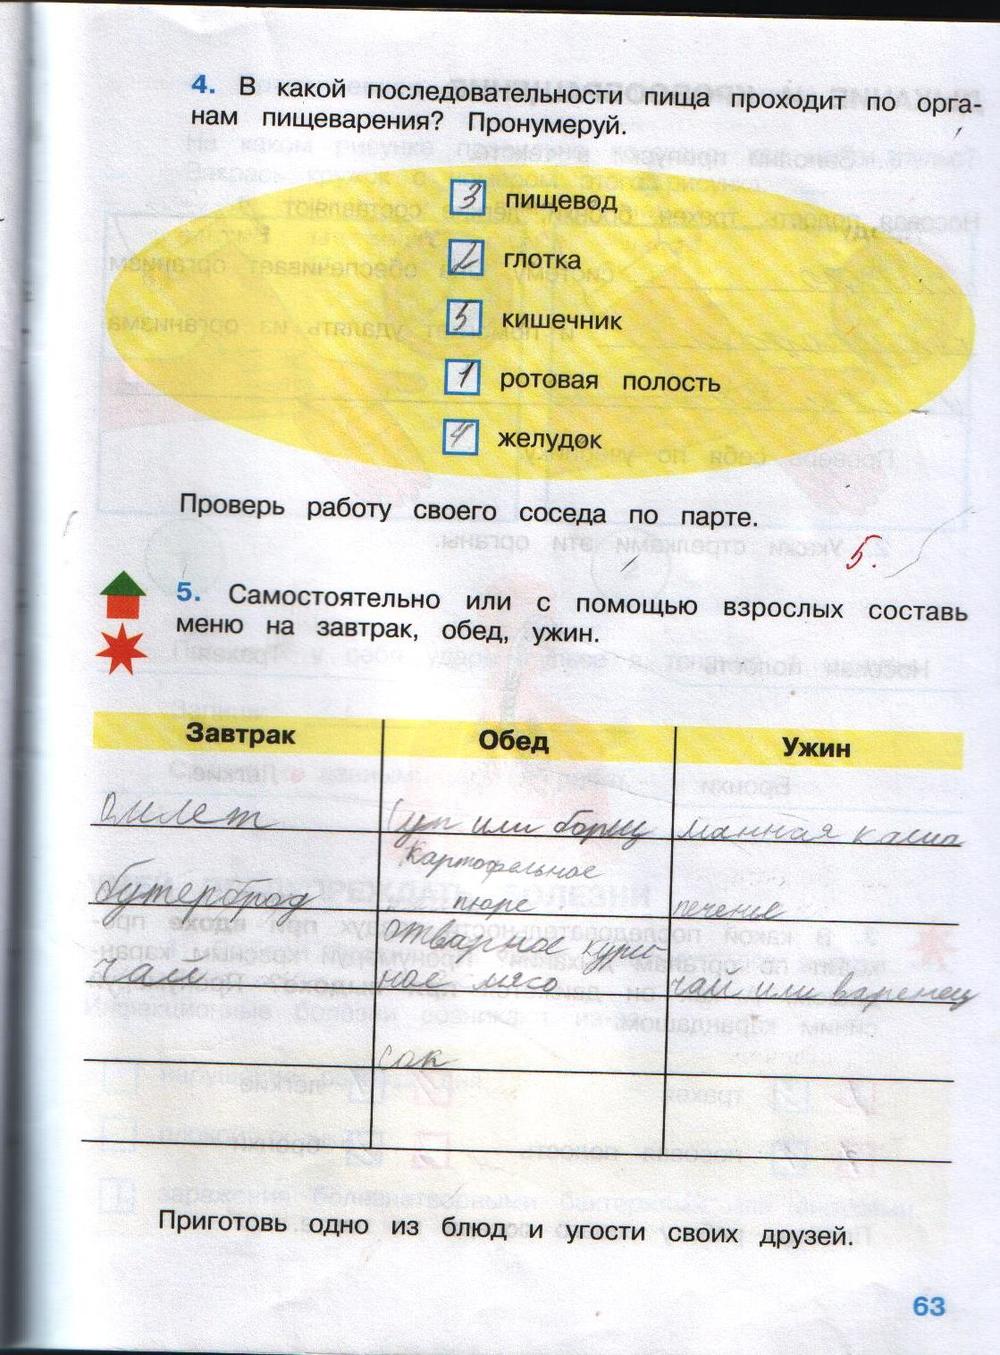 4. В какой последовательности пища проходит по орга-
нам пищеварения? Пронумеруй.
3 пищевод
2 глотка
5 кишечник
1 ротовая полость
4 желудок
Проверь работу своего соседа по парте.
5.
5. Самостоятельно или с помощью взрослых составь
меню на завтрак, обед, ужин.
Завтрак Обед Ужин
Омлет Суп или борщ манная каша
Картофельное
бутерброд пюре печенье
отварное кури
чай ное мясо чай или варенец
сок
Приготовь одно из блюд и угости своих друзей.
63